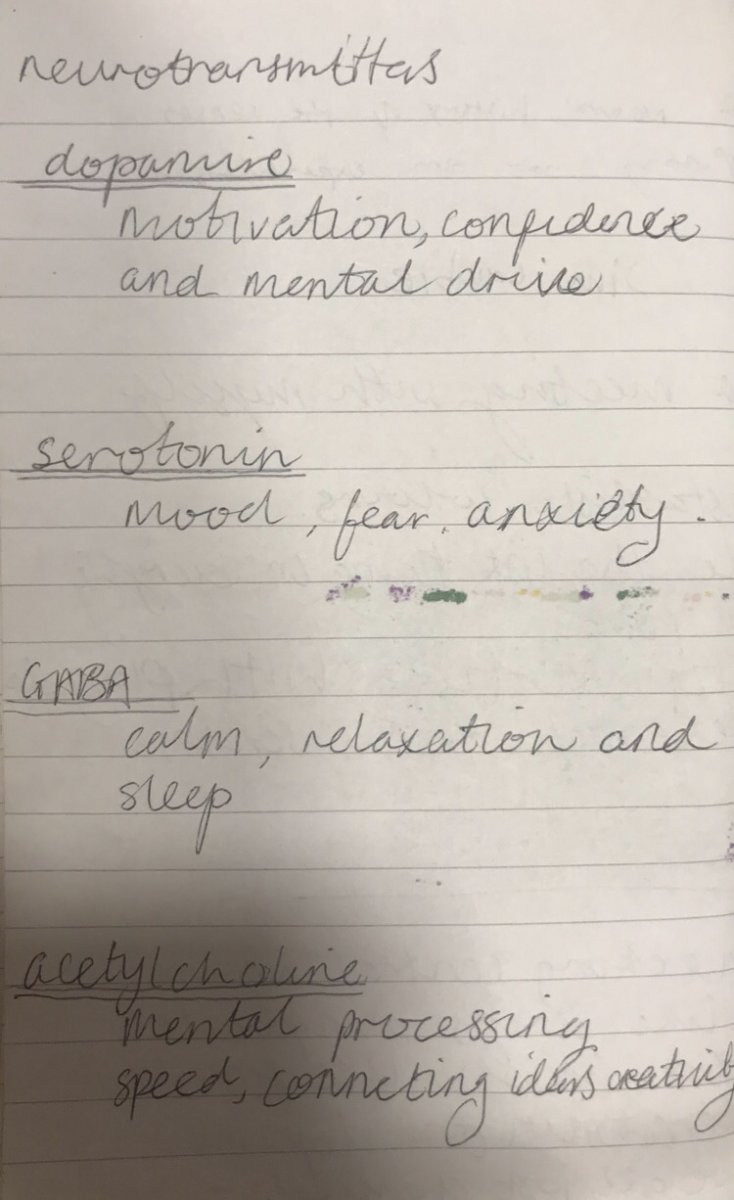 neurotransmitters
dopamine
motivation, confidence
and mental drive
serotonin
mood, fear, anxiety.
GABA
calm, relaxation and
sleep
acetylcholine
mental processing
speed, conneting ideas creativity